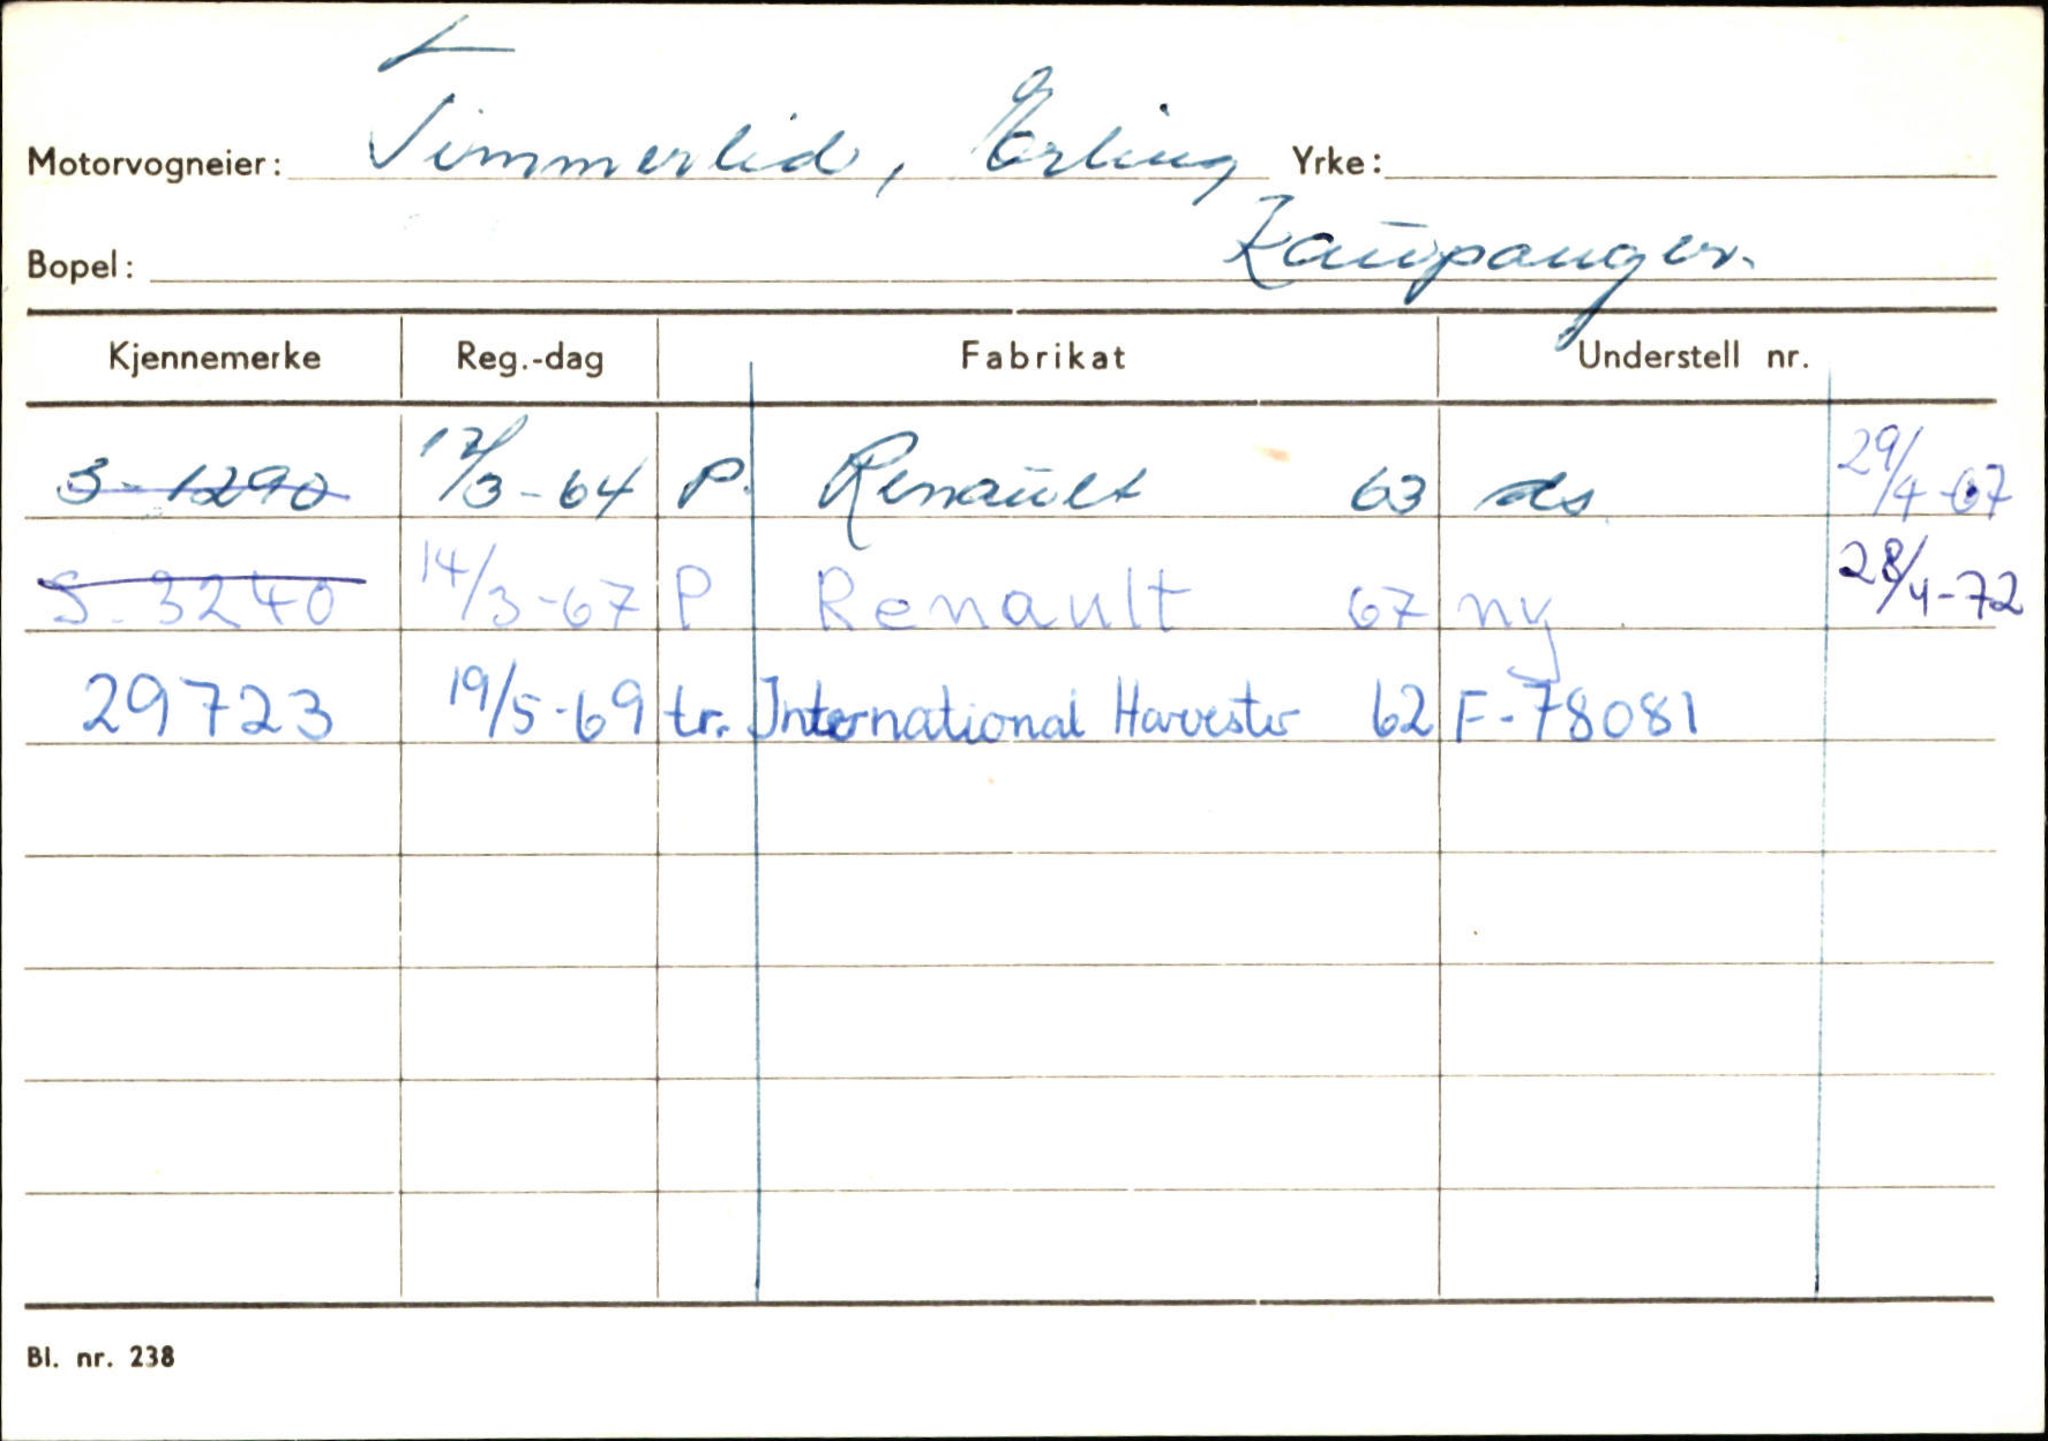 Motorvogneier: Timmerlid, Erling Yrke:
Bopel: Kaupanger.
Kjennemerke Reg.-dag Fabrikat Understell nr.
S-1290 12/3-64 P. Renault 63 ds 29/4-67
S-3240 14/3-67 P Renault 67 ny 28/4-72
29723 19/5-69 tr. International Harvester 62 F-78081
Bl. nr. 238